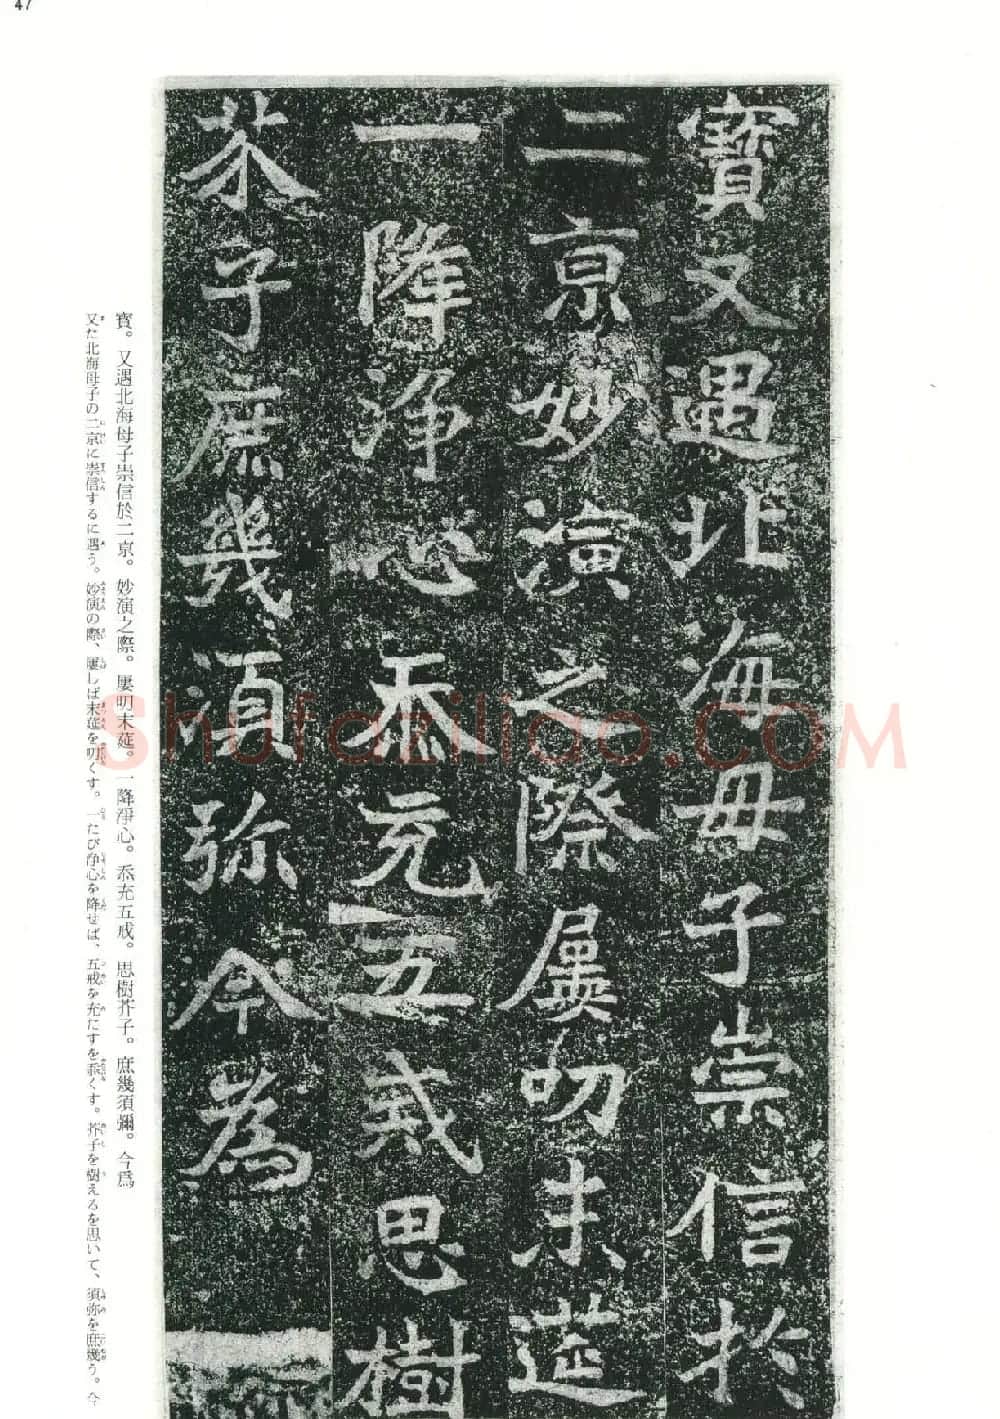 47
寶又遇北海母子崇信於
二京妙演之際屢叨末莚
一降淨心忝充五戒思樹
芥子庶幾須弥今為
寳。又遇北海母子崇信於二京。妙演之際。屢叨末莚。一降淨心。忝充五戒。思樹芥子。庶幾須彌。今爲
又た北海母子の二京に崇信するに遇う。妙演の際、屢しば末莚を叨くす。一たび淨心を降せば、五戒を充たすを忝くす。芥子を樹えるを思いて、須弥を庶幾う。今
Shufaziliao.COM